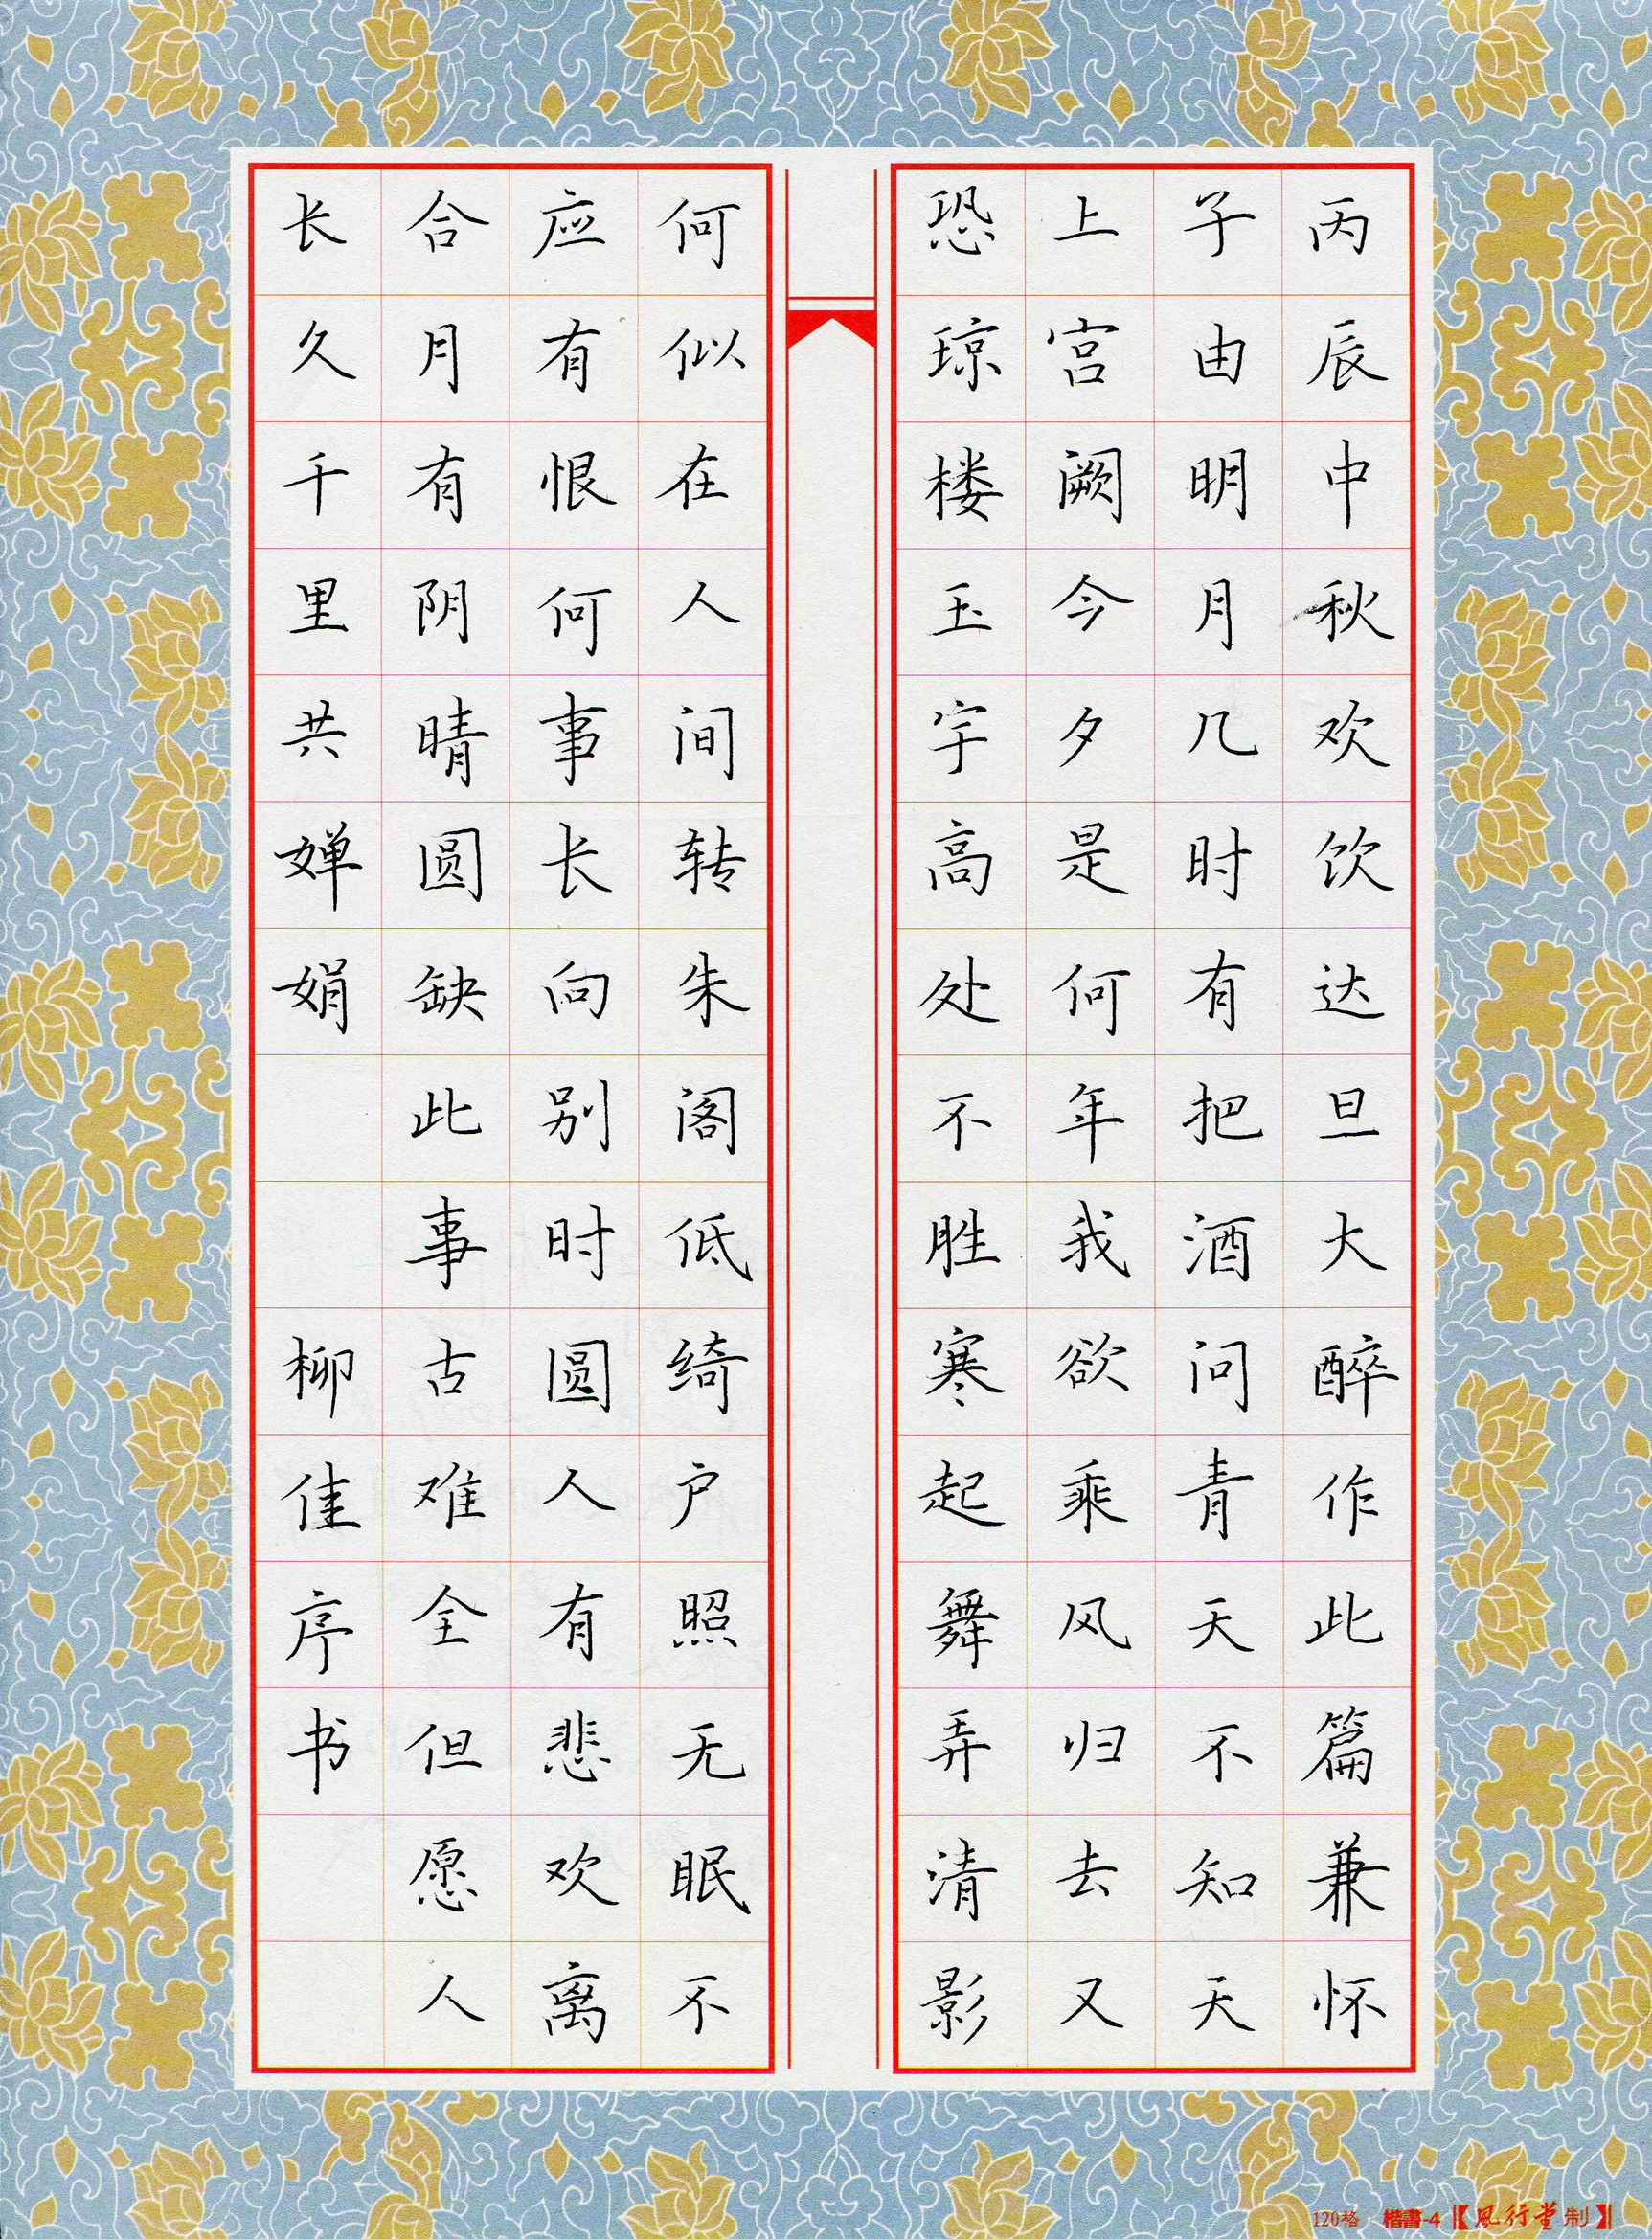 丙辰中秋欢饮达旦大醉作此篇兼怀
子由明月几时有把酒问青天不知天
上宫阙今夕是何年我欲乘风归去又
恐琼楼玉宇高处不胜寒起舞弄清影
何似在人间转朱阁低绮户照无眠不
应有恨何事长向别时圆人有悲欢离
合月有阴晴圆缺此事古难全但愿人
长久千里共婵娟 柳佳序书
120格 楷書-4【風行堂制】